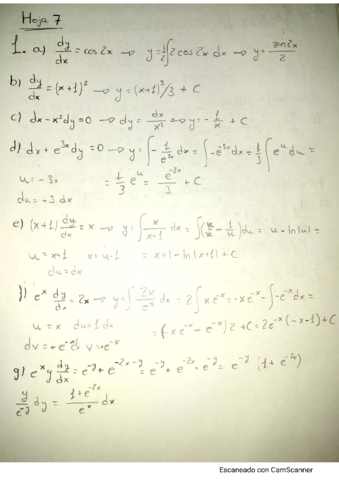 Hoja 7
1. a) dy/dx = cos 2x → y = 1/2 ∫ 2 cos 2x dx → y = sen 2x / 2
b) dy/dx = (x+1)² → y = (x+1)³/3 + C
c) dx - x² dy = 0 → dy = dx/x² → y = -1/x + C
d) dx + e^3x dy = 0 → y = ∫ - 1/e^3x dx = ∫ -e^-3x dx = 1/3 ∫ e^u du =
u = -3x = 1/3 e^u = e^-3x/3 + C
du = -3 dx
e) (x+1) dy/dx = x → y = ∫ x/(x+1) dx = ∫ (u/u - 1/u) du = u - ln|u| =
u = x+1 x = u-1 = x+1 - ln|x+1| + C
du = dx
f) e^x dy/dx = 2x → y = ∫ 2x/e^x dx = 2 ∫ x e^-x = -x e^-x - ∫ -e^-x dx =
u = x du = 1 dx = (-x e^-x - e^-x) 2 + C = 2e^-x (-x-1) + C
dv = e^-x dx v = -e^-x
g) e^x y dy/dx = e^-y + e^-2x-y = e^-y + e^-2x · e^-y = e^-y (1 + e^-2x)
y/e^-y dy = (1 + e^-2x)/e^x dx
Escaneado con CamScanner